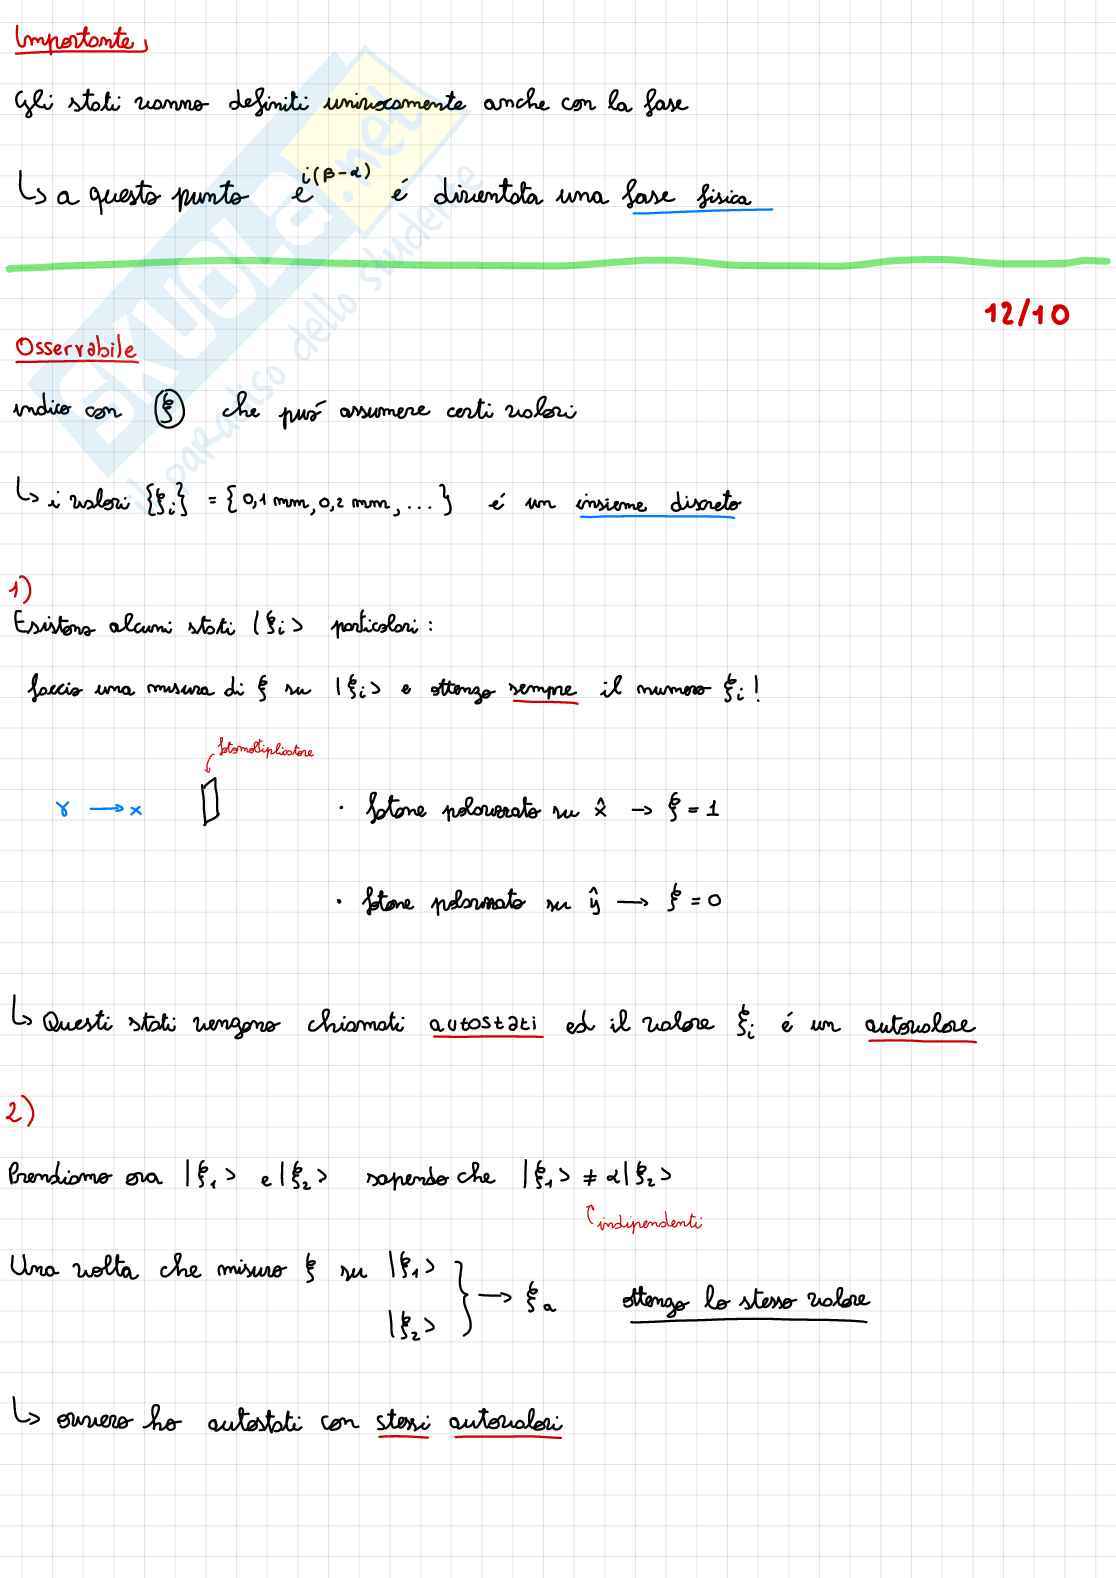 Importante
Gli stati vanno definiti univocamente anche con la fase
↳ a questo punto e^{i(β-α)} é diventata una fase fisica
12/10
Osservabile
indico con ξ che puó assumere certi valori
↳ i valori {ξi} = {0,1 mm, 0,2 mm, ...} é un insieme discreto
1)
Esistono alcuni stati |ξi> particolari:
faccio una misura di ξ su |ξi> e ottengo sempre il numero ξi!
fotomoltiplicatore
γ → x
· fotone polarizzato su x̂ → ξ = 1
· fotone polarizzato su ŷ → ξ = 0
↳ Questi stati vengono chiamati autostati ed il valore ξi é un autovalore
2)
Prendiamo ora |ξ1> e |ξ2> sapendo che |ξ1> ≠ α|ξ2>
indipendenti
Una volta che misuro ξ su |ξ1>
|ξ2>
} → ξa ottengo lo stesso valore
↳ ovvero ho autostati con stessi autovalori
SKUOLA.net
il paradiso dello studente